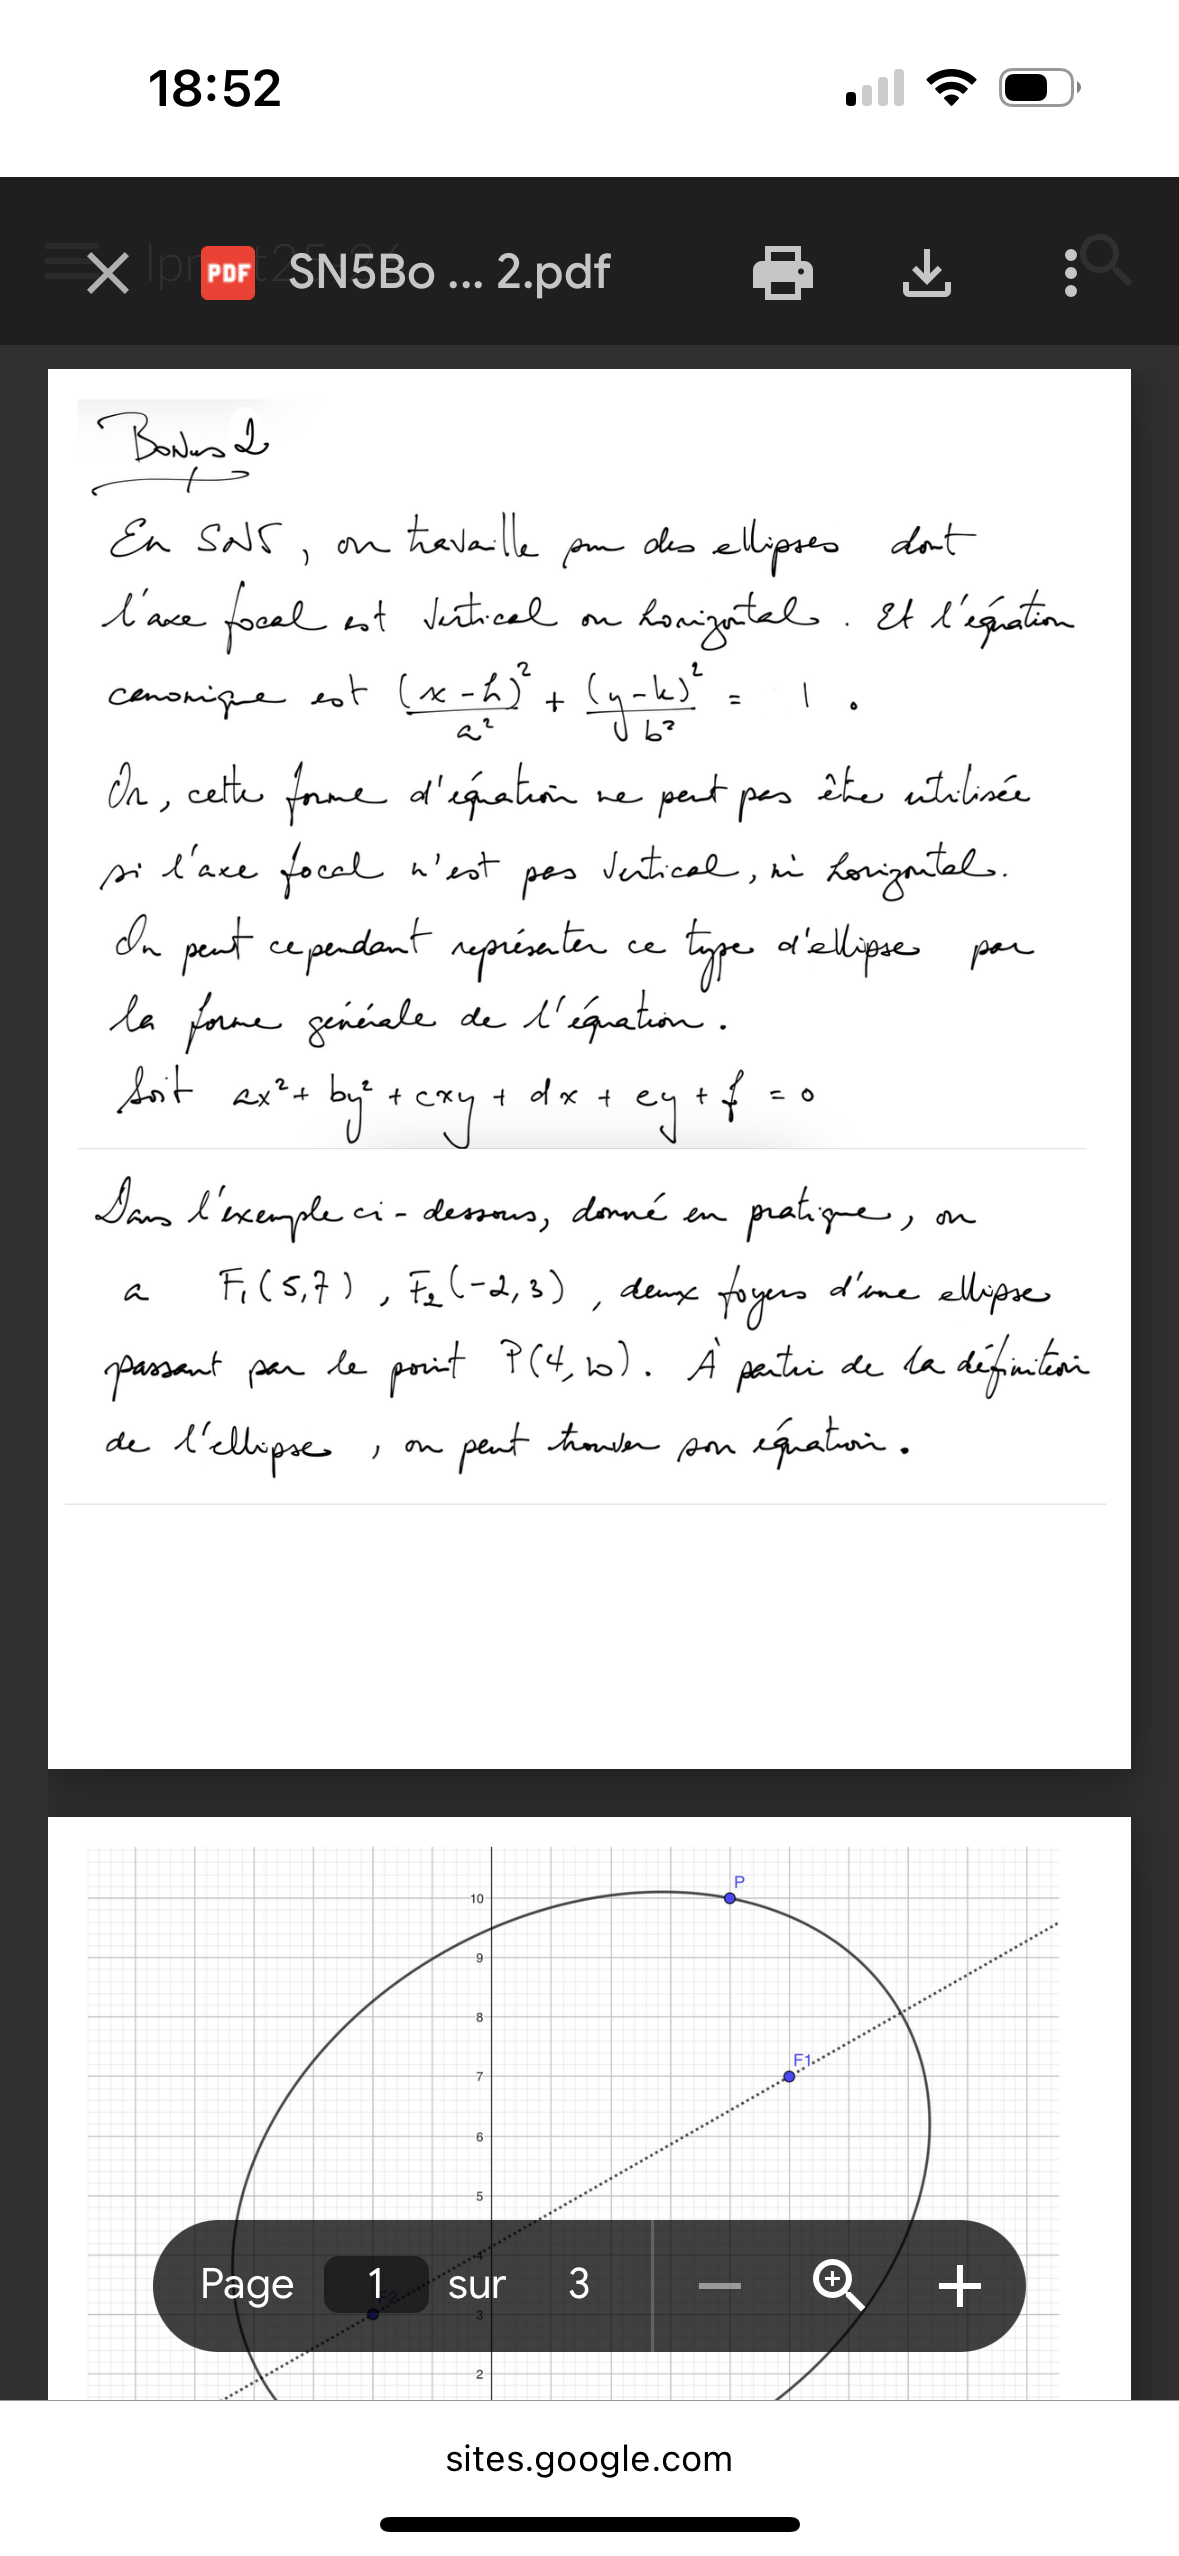 18:52
PDF SN5Bo ... 2.pdf
Bonus 2
En SN5, on travaille sur des ellipses dont
l'axe focal est vertical ou horizontal. Et l'équation
canonique est (x-h)²/a² + (y-k)²/b² = 1.
Or, cette forme d'équation ne peut pas être utilisée
si l'axe focal n'est pas vertical, ni horizontal.
On peut cependant représenter ce type d'ellipse par
la forme générale de l'équation.
Soit ax² + by² + cxy + dx + ey + f = 0
Dans l'exemple ci-dessous, donné en pratique, on
a F₁(5,7), F₂(-2,3), deux foyers d'une ellipse
passant par le point P(4,10). À partir de la définition
de l'ellipse, on peut trouver son équation.
P
10
9
8
F1
7
6
5
4
F2
3
2
Page 1 sur 3
sites.google.com